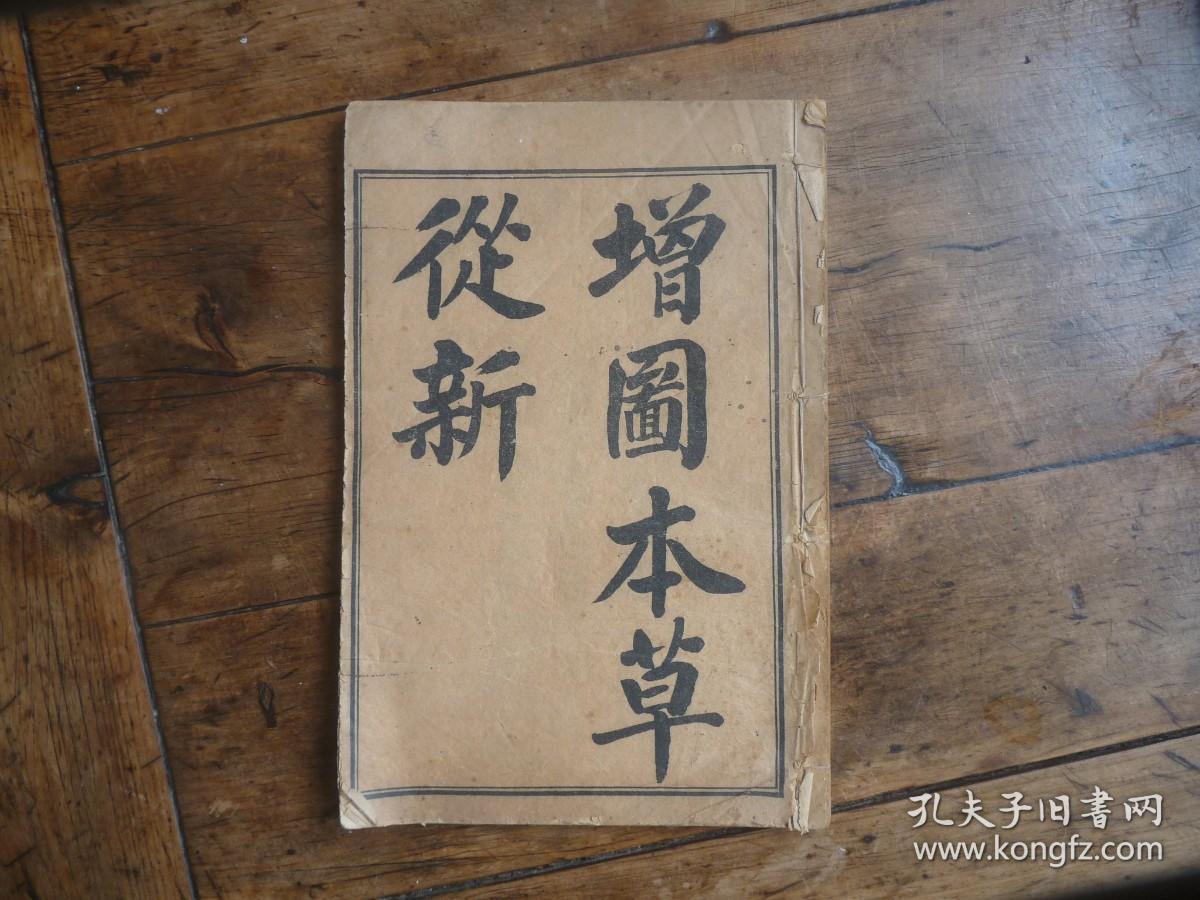 增圖本草
從新
孔夫子旧书网
www.kongfz.com